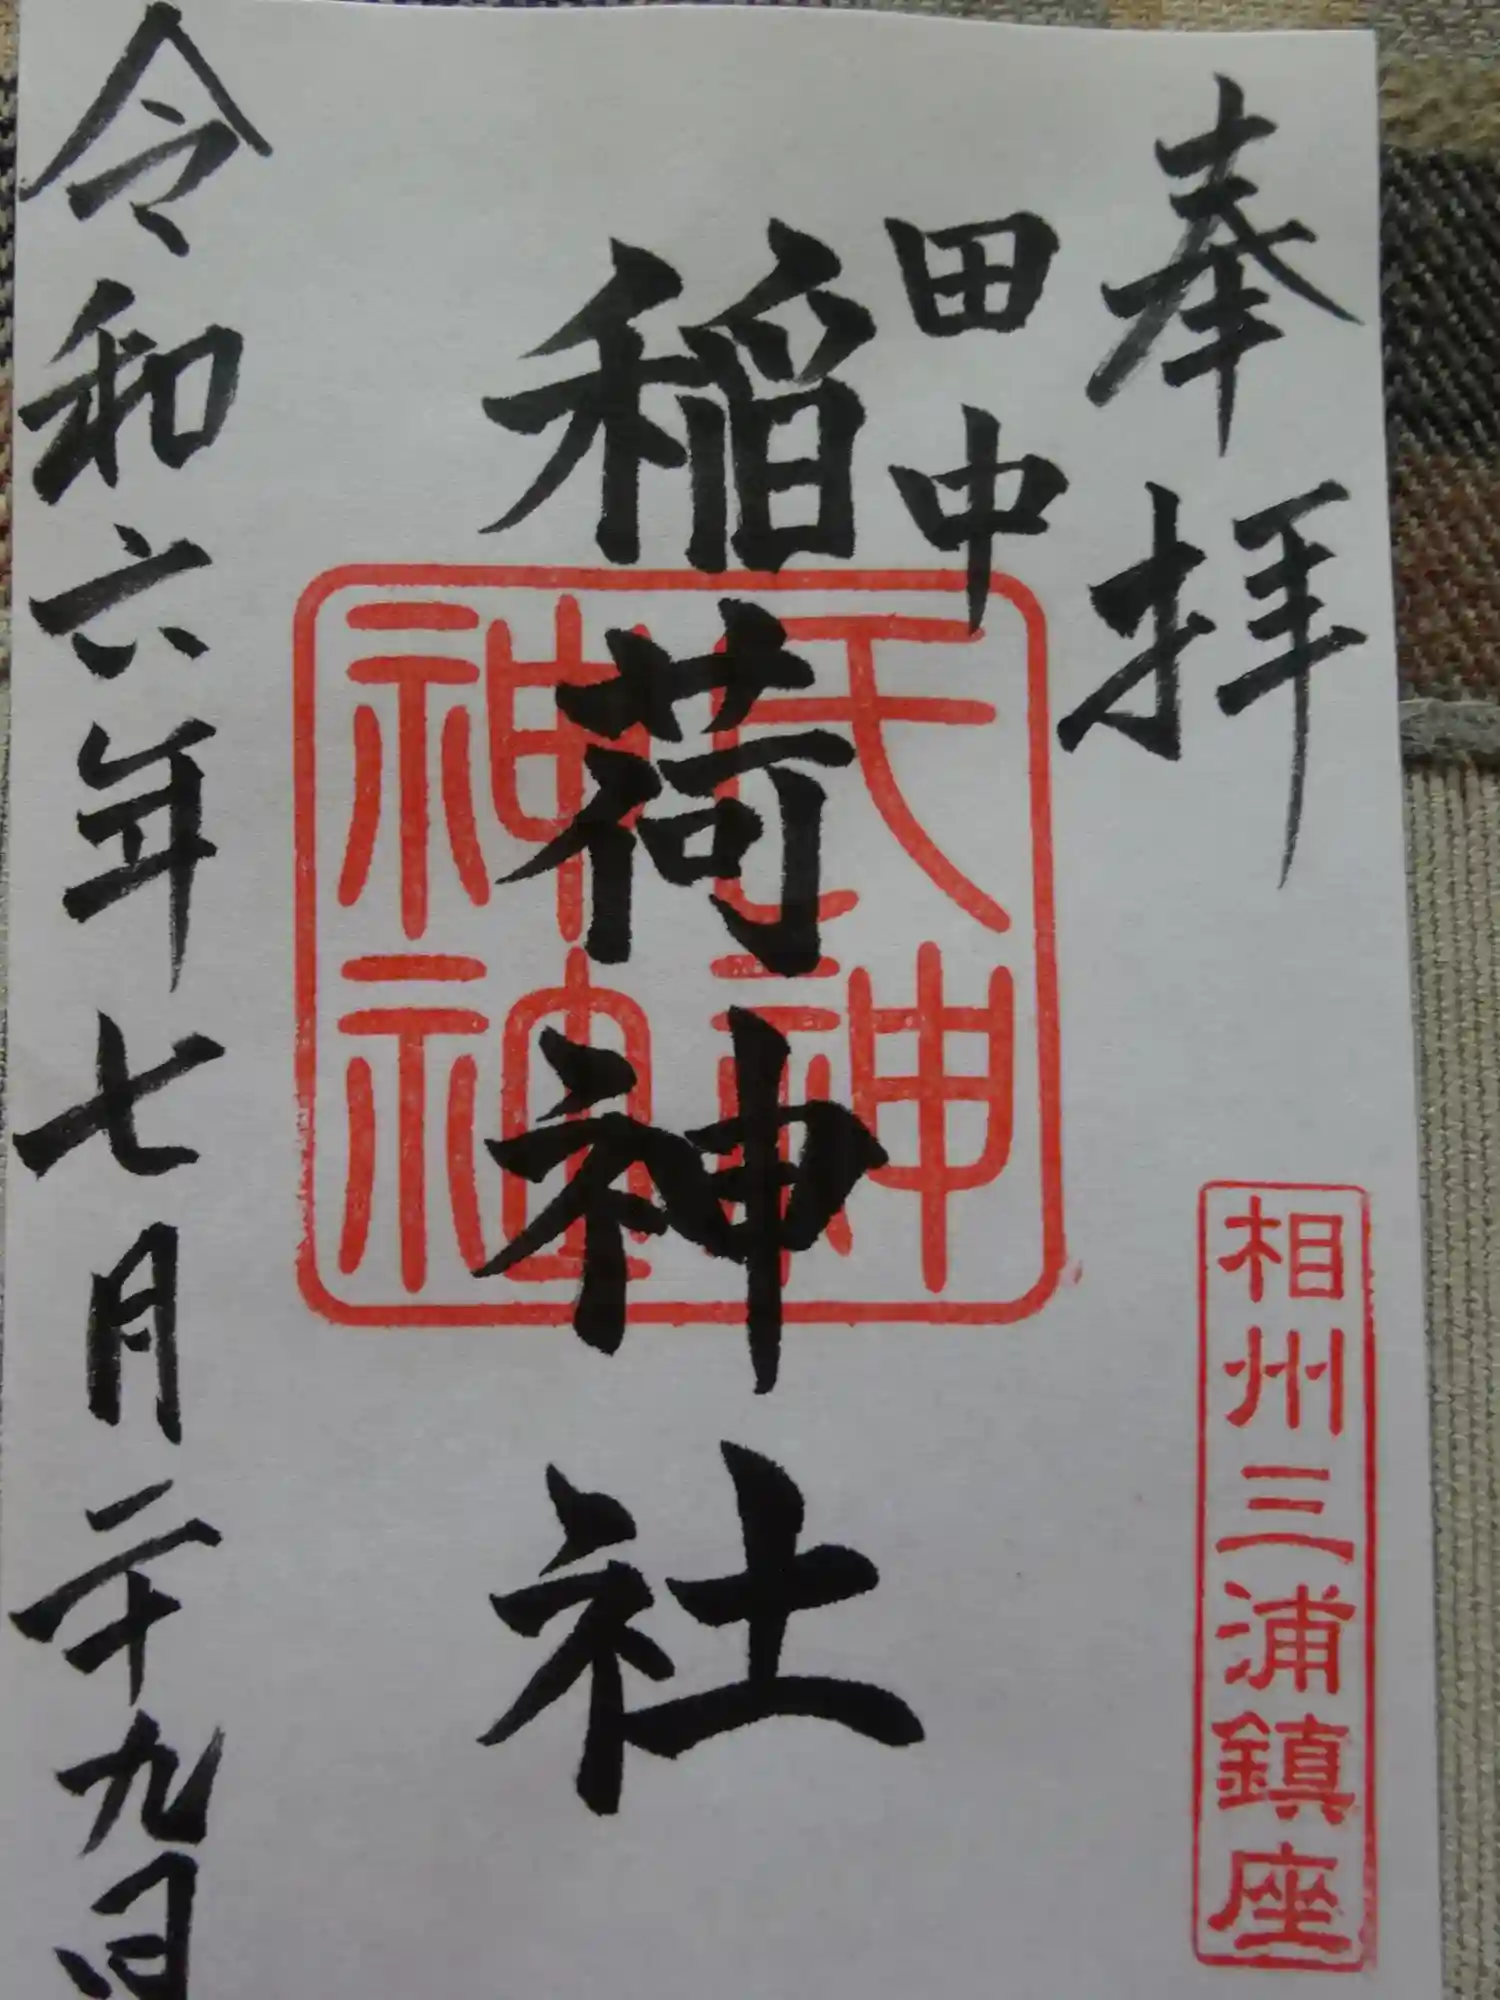 奉拝
相州三浦鎮座
田中
稲荷神社
氏神
神社
令和六年七月二十九日